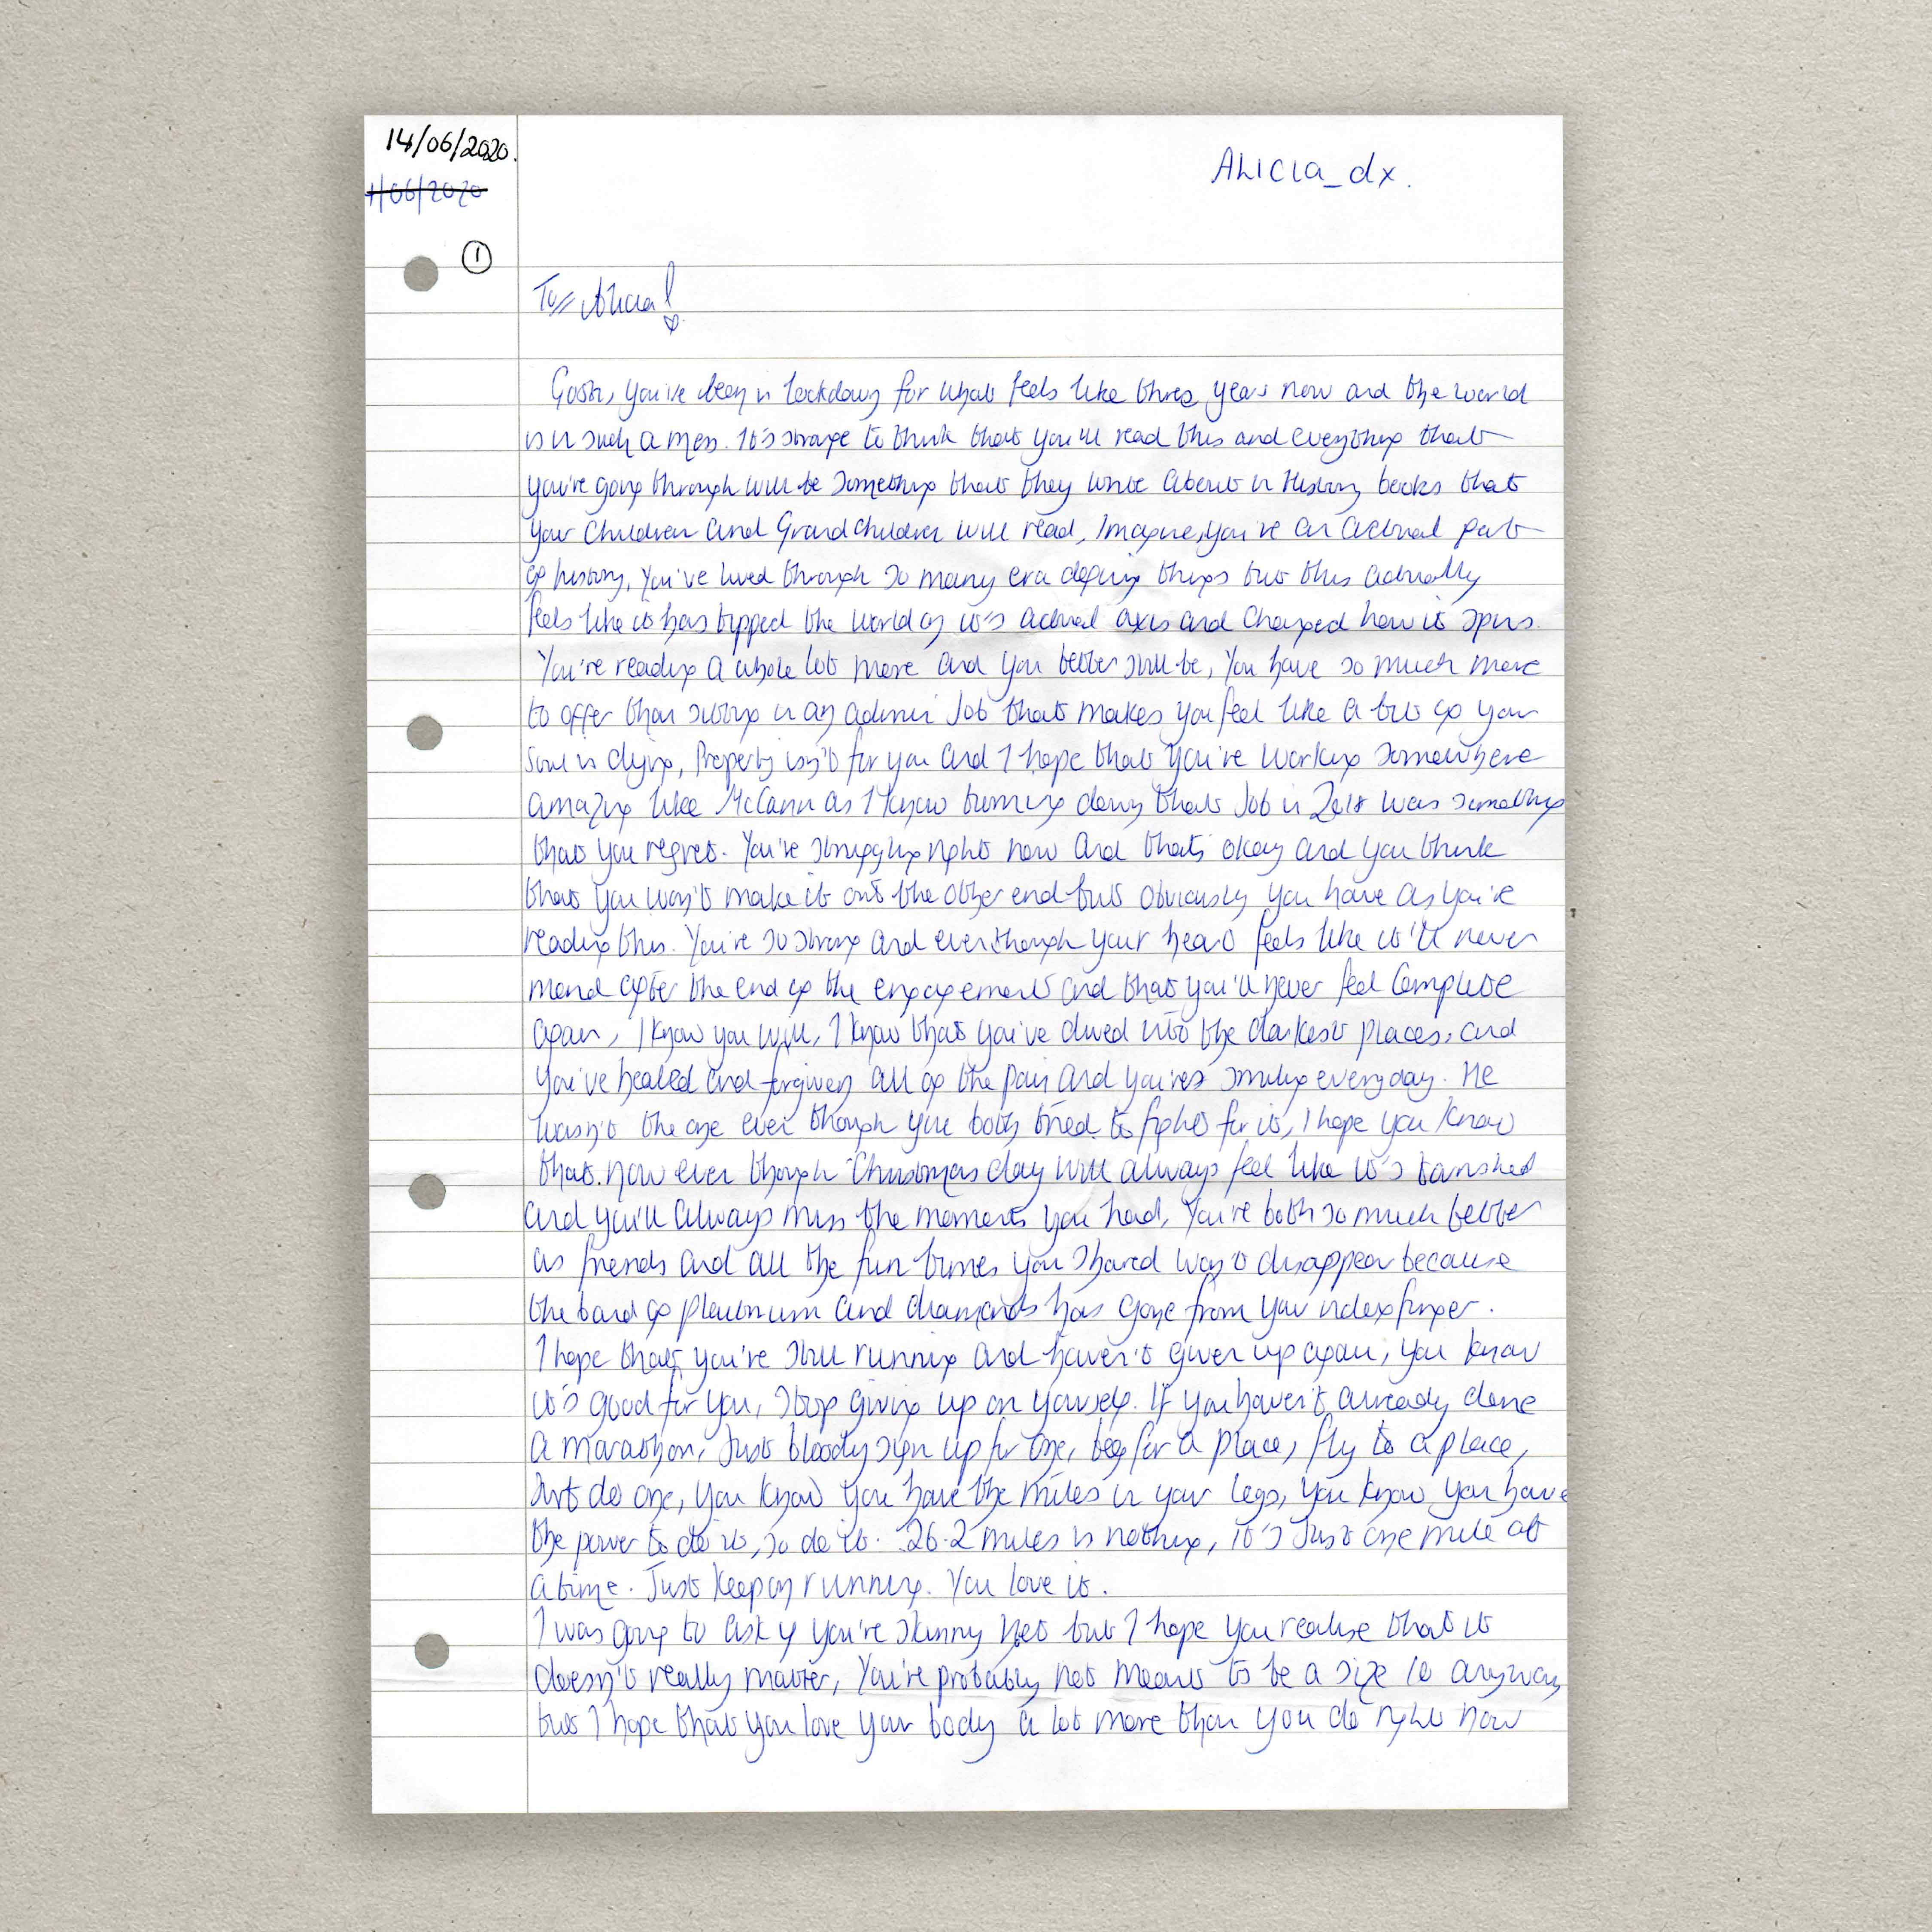 14/06/2020.
1/06/2020
ALICIA_dx.
1
To// Alicia!
Gosh, you've been in lockdown for what feels like three years now and the world
is in such a mess. It's strange to think that you'll read this and everything that
you're going through will be something that they write about in History books that
your children and Grandchildren will read, Imagine, you're an actual part
of history, You've lived through so many era defining things but this actually
feels like it has tipped the world on it's actual axis and changed how it spins.
You're reading a whole lot more and you better still be, You have so much more
to offer than sitting in an admin Job that makes you feel like a bit of your
soul is dying, Property isn't for you and I hope that you're working somewhere
amazing like McCann as I know turning down that Job in 2018 was something
that you regret. You're struggling right now and that's okay and you think
that you won't make it out the other end but obviously you have as you're
reading this. You're so strong and even though your heart feels like it'll never
mend after the end of the engagement and that you'll never feel complete
again, I know you will, I know that you've dived into the darkest places, and
you've healed and forgiven all of the pain and you're smiling everyday. He
wasn't the one even though you both tried to fight for it, I hope you know
that. now even though Christmas day will always feel like it's tarnished
and you'll always miss the moments you had, You're both so much better
as friends and all the fun times you shared won't disappear because
the band of platinum and diamonds has gone from your index finger.
I hope that you're still running and haven't given up again, you know
it's good for you, stop giving up on yourself. If you haven't already done
a marathon, Just bloody sign up for one, beg for a place, fly to a place,
Just do one, you know you have the miles in your legs, you know you have
the power to do it, so do it. 26.2 miles is nothing, it's Just one mile at
a time. Just keep on running. You love it.
I was going to ask if you're skinny yet but I hope you realise that it
doesn't really matter, You're probably not meant to be a size 10 anyway
but I hope that you love your body a lot more than you do right now